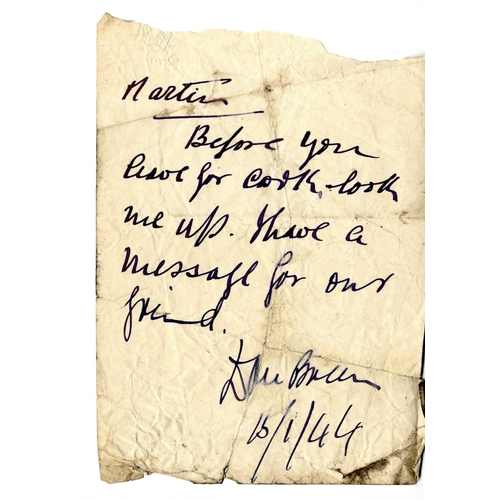 Martin
Before you
leave for Cork, look
me up. I have a
message for our
friend.
Dan Breen
15/1/44